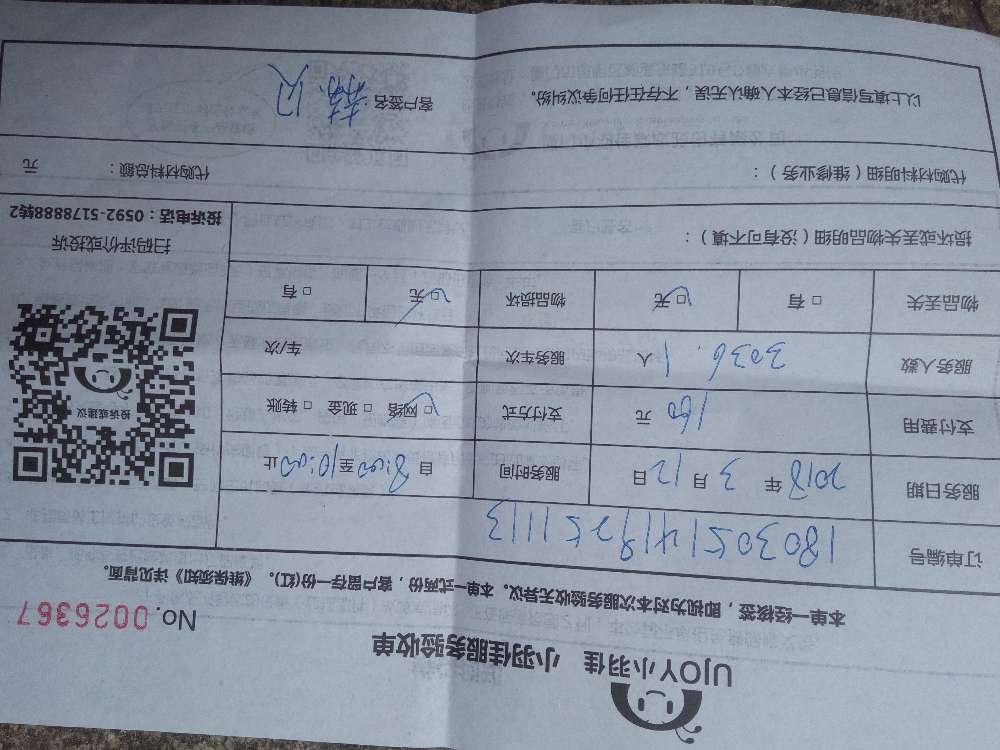 UJOY小羽佳 小羽佳服务验收单
No. 0026367
本单一经核签，即视为对本次服务验收无异议。本单一式两份，客户留存一份(红)。《维保须知》详见背面。
订单编号 1803051419251113
服务日期 2018年 3月12日 服务时间 自8:00至10:00止
支付费用 160 元 支付方式 □网络 □现金 □转账
服务人数 3036. 1 人 服务车次 车/次
物品丢失 □有 □无 物品损坏 □无 □有
投诉或建议
扫码评价或投诉
投诉电话：0592-5178888转2
损坏或丢失物品明细（没有可不填）：
代购材料明细（维修业务）： 代购材料总额： 元
以上填写信息已经本人确认无误，不存在任何争议纠纷。 客户签名: